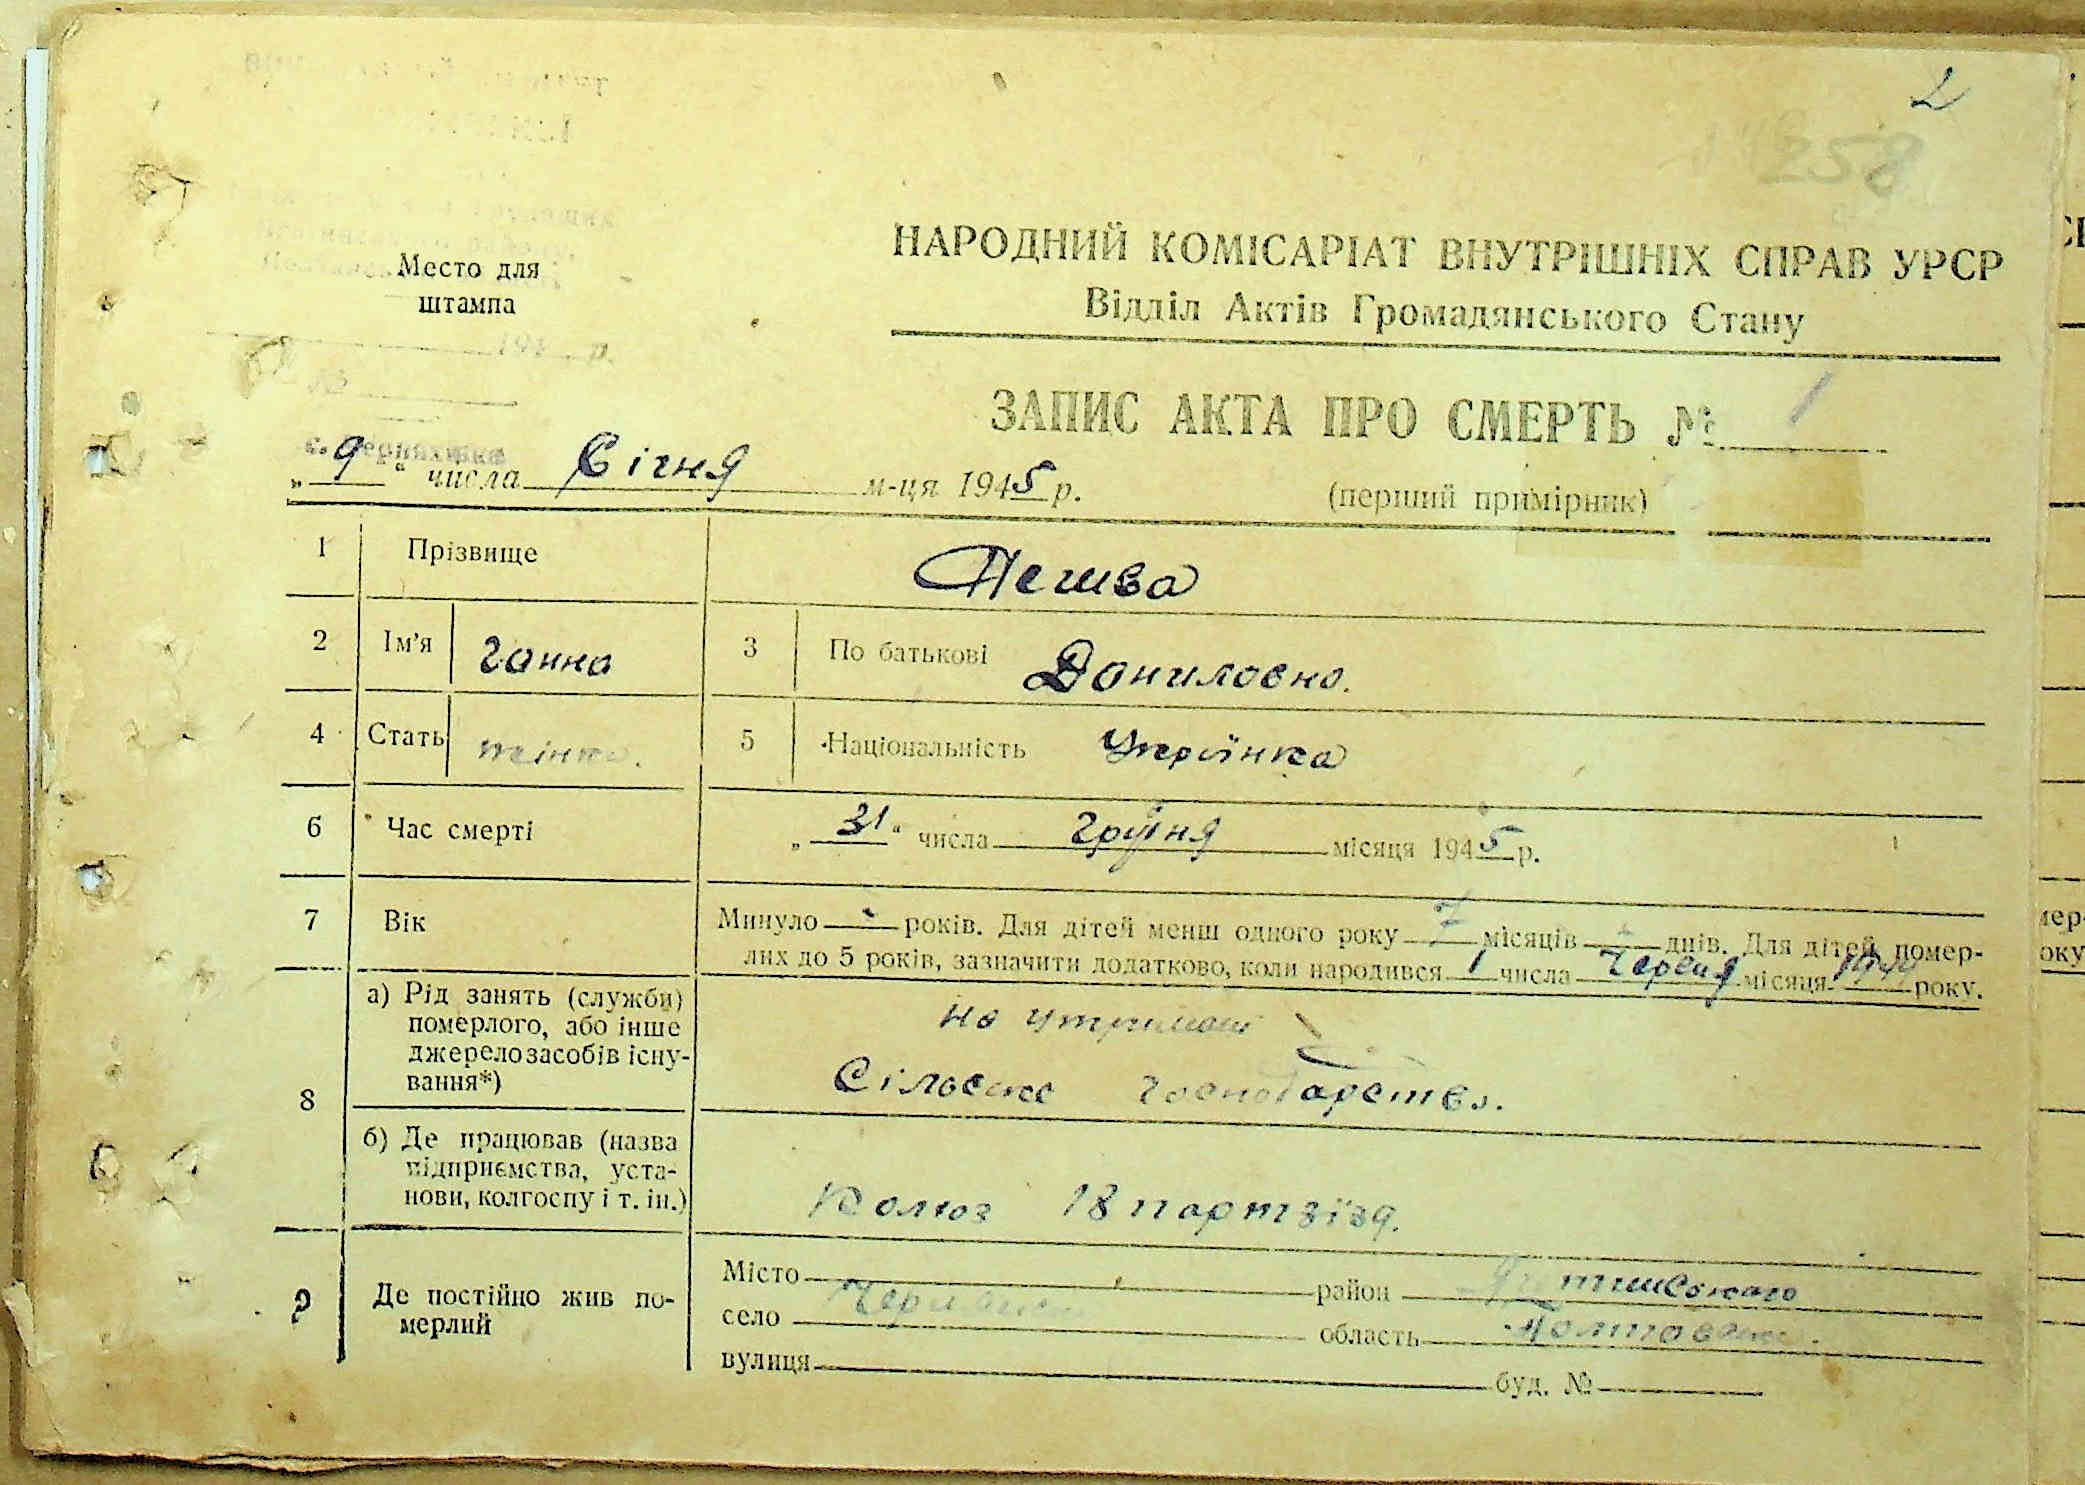 2
258
Место для
штампа
НАРОДНИЙ КОМІСАРІАТ ВНУТРІШНІХ СПРАВ УРСР
Відділ Актів Громадянського Стану
194 р.
№
ЗАПИС АКТА ПРО СМЕРТЬ № 1
(перший примірник)
„9“ числа Січня м-ця 1945 р.
1 Прізвище Пешва
2 Ім'я Ганна 3 По батькові Даниловна.
4 Стать жінка. 5 Національність Українка
6 Час смерті „31“ числа Грудня місяця 1945 р.
7 Вік Минуло - років. Для дітей менш одного року 7 місяців - днів. Для дітей помер-
лих до 5 років, зазначити додатково, коли народився 1 числа Червня місяця 1944 року.
8 а) Рід занять (служби)
померлого, або інше
джерело засобів існу-
вання*)
на утримані
Сільське господарство.
б) Де працював (назва
підприємства, уста-
нови, колгоспу і т. ін.)
Колгоз 18 партзізд.
9 Де постійно жив по-
мерлий
Місто район
село область Полтавська.
вулиця буд. №